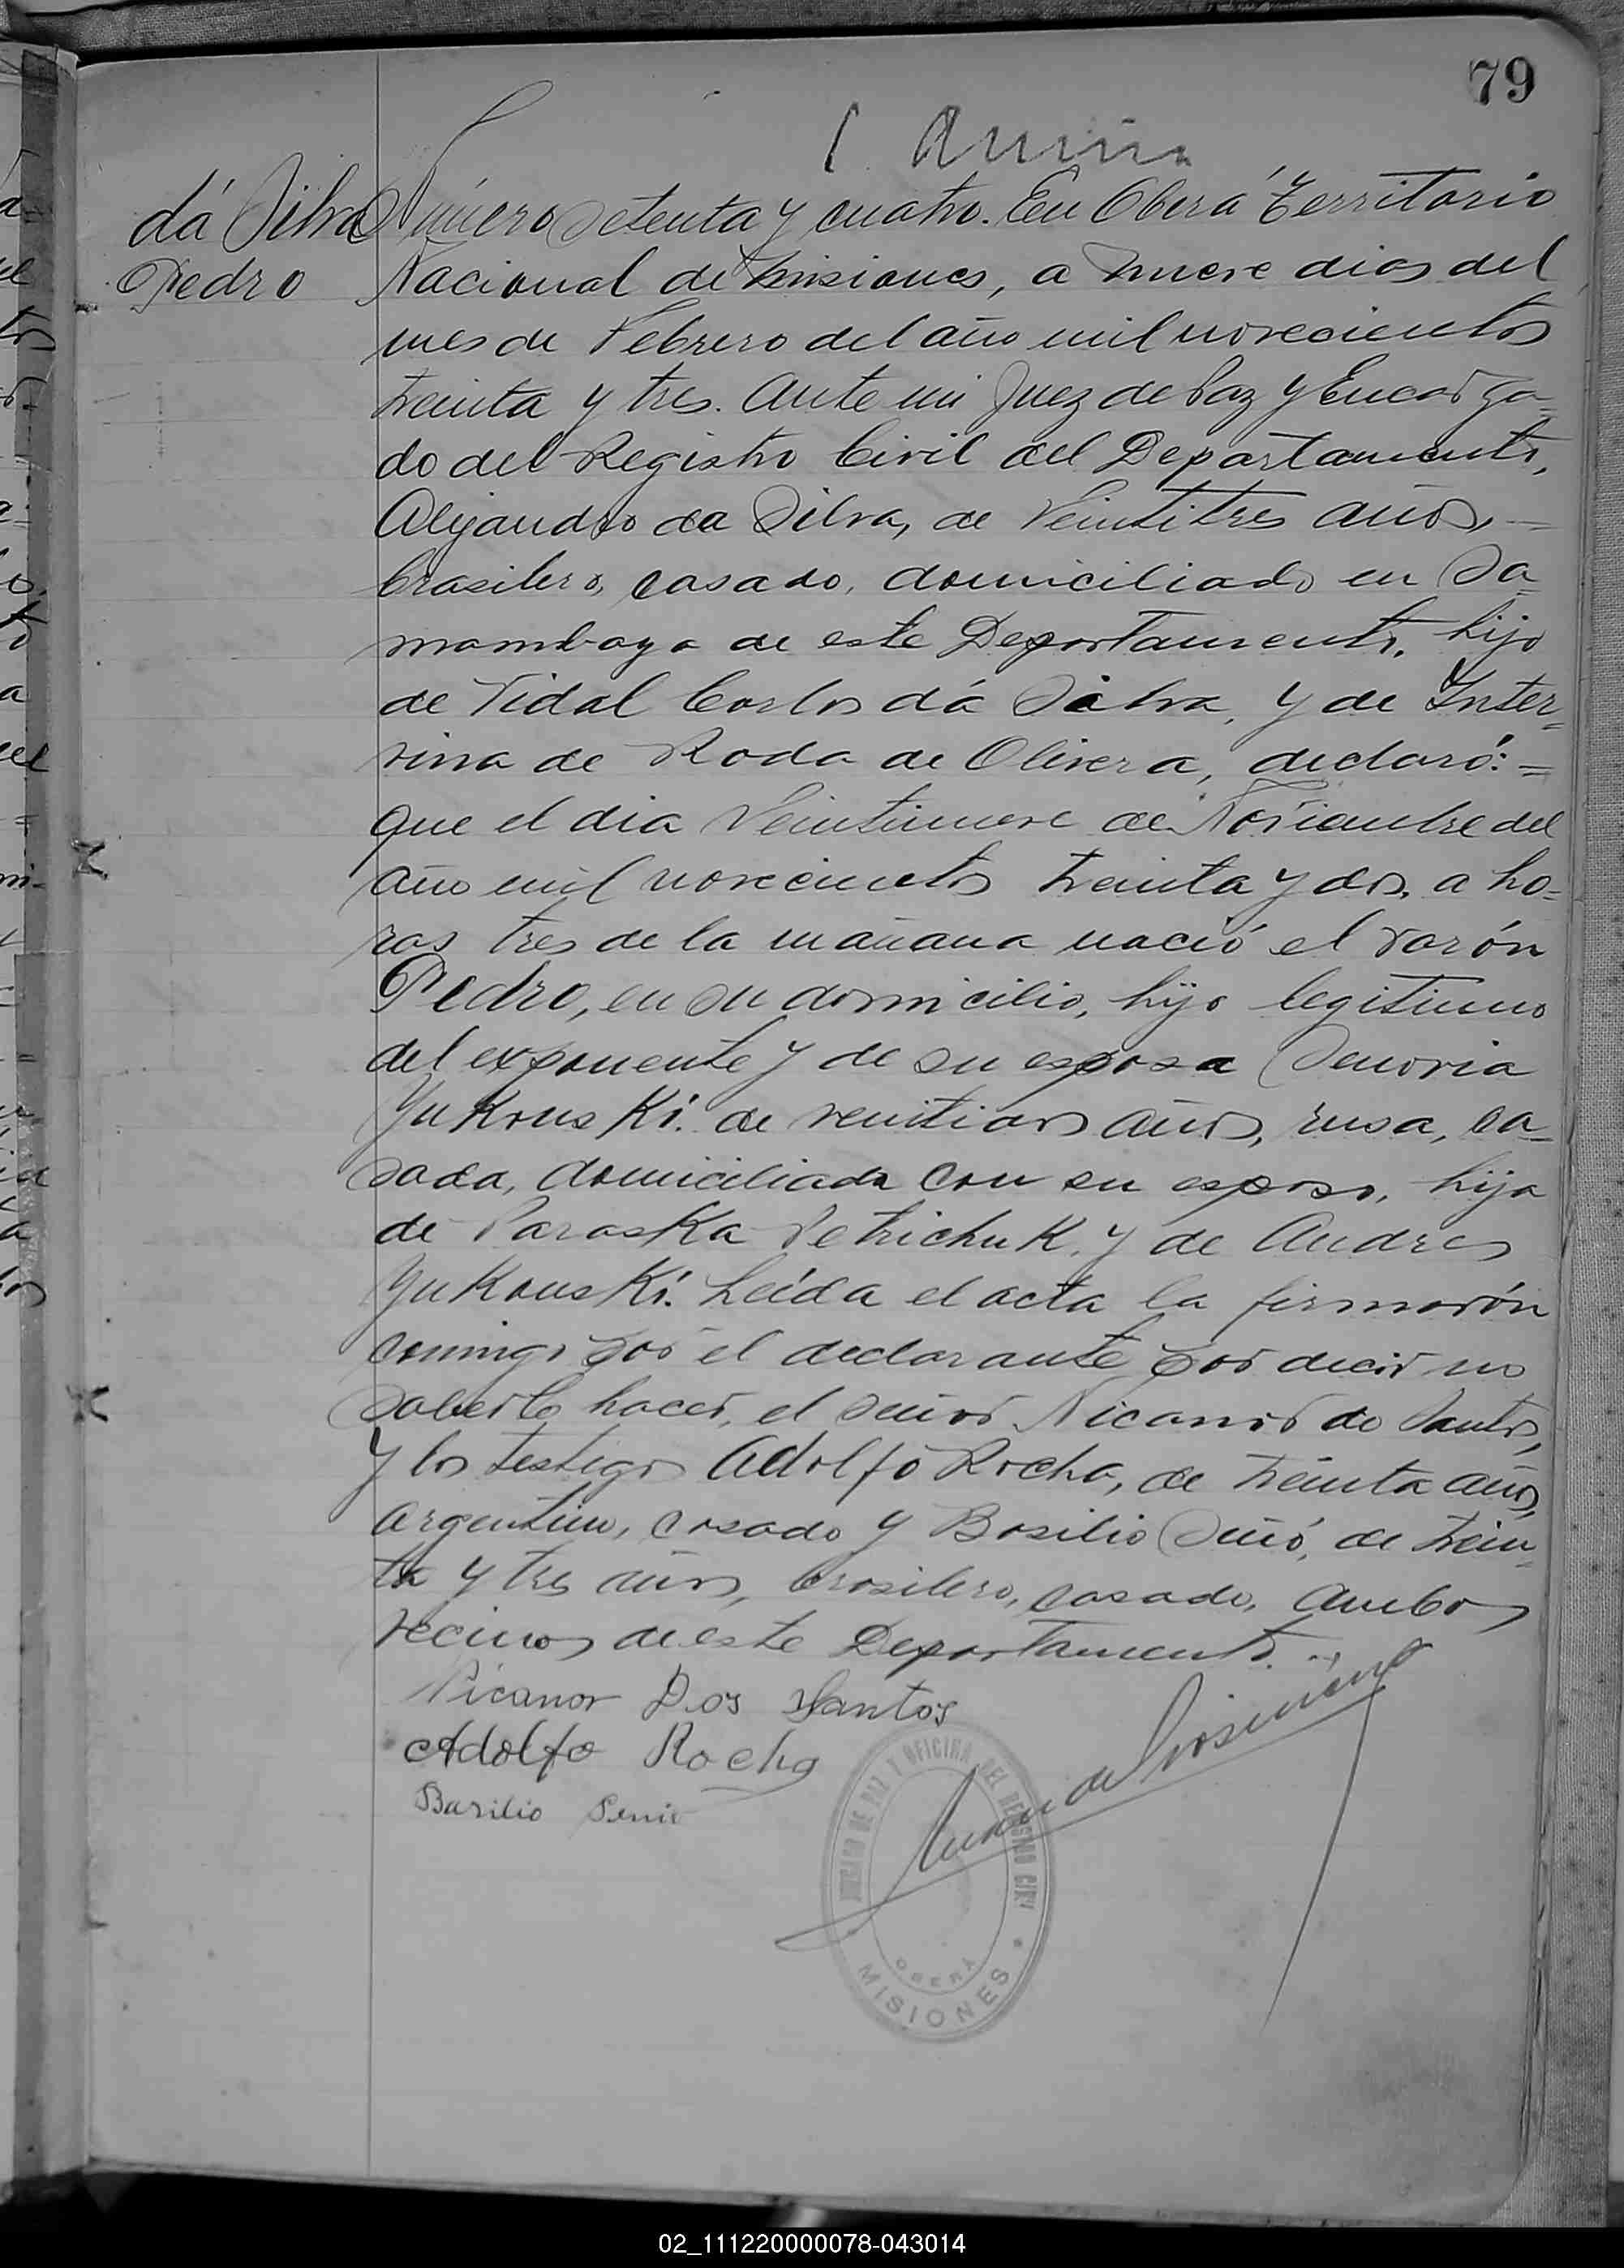 79
dá Silva
Pedro
Número Setenta y cuatro. En Oberá Territorio
Nacional de Misiones, a nueve dias del
mes de Febrero del año mil novecientos
treinta y tres. Ante mi Juez de Paz y Encarga-
do del Registro Civil del Departamento,
Alejandro da Silva, de Veintitres años,
brasilero, casado, domiciliado en Sa-
mambaya de este Departamento, hijo
de Vidal Carlos dá Silva, y de Inter-
vina de Roda de Olivera, declaró: =
que el dia Veintinueve de Noviembre del
año mil novecientos treinta y dos, a ho-
ras tres de la mañana nació el varón
Pedro, en su domicilio, hijo legitimo
del exponente y de su esposa Senovia
Yukouski. de veintidos años, rusa, ca-
sada, domiciliada con su esposo, hija
de Paraska Petrichuk, y de Andres
Yukouski. Leída el acta la firmarón
conmigo por el declarante por decir no
saberlo hacer, el señor Nicanor do Santos,
y los testigos Adolfo Rocha, de treinta años,
argentino, casado y Basilio Senió, de trein-
ta y tres años, brasilero, casado, ambos
vecinos de este Departamento.
Nicanor Dos Santos
Adolfo Rocha
Basilio Senio
JUZGADO DE PAZ Y OFICINA DEL REGISTRO CIVIL
OBERÁ
MISIONES
02_111220000078-043014